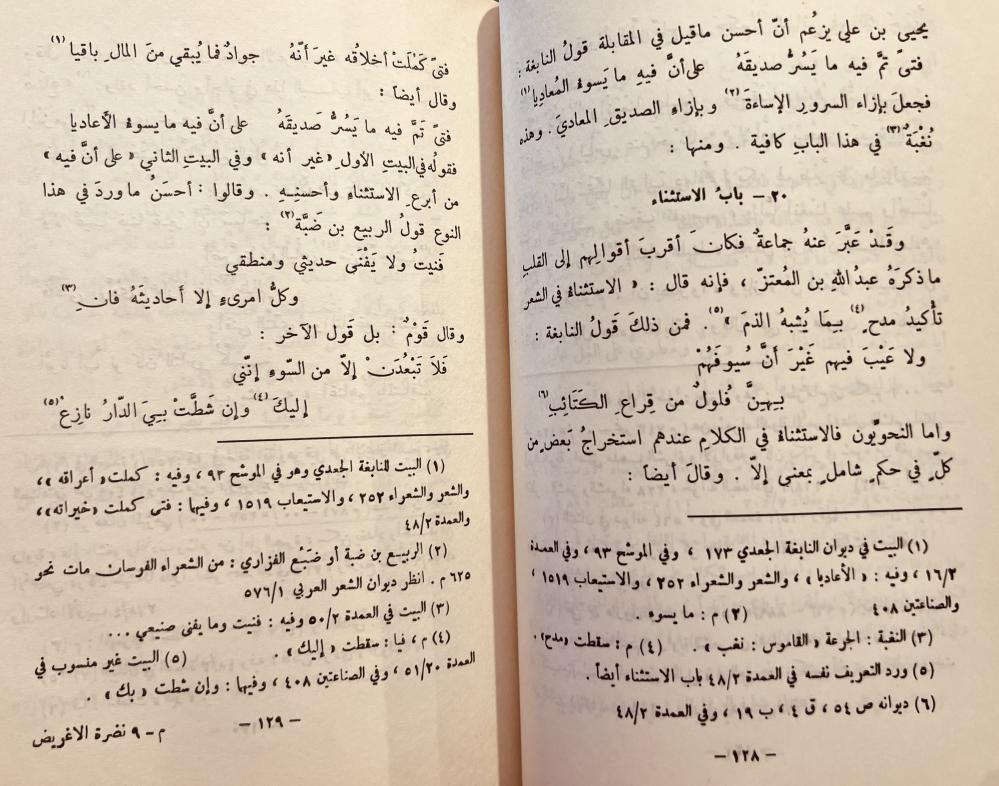 يحيى بن علي يزعُم أنّ أحسن ماقيل في المقابلة قولُ النابغة :
فتىً تمَّ فيه ما يَسُرُّ صديقَهُ على أنَّ فيهِ ما يَسوءُ المُعاديا (١)
فجعلَ بإزاء السرورِ الإساءةَ (٢) وبإزاء الصديقِ المعاديَ . وهذه
نُغْبَةٌ (٣) في هذا البابِ كافية . ومنها :
٢٠ – بابُ الاستثناء
وقَدْ عَبَّرَ عنهُ جماعةٌ فكانَ أقربَ أقوالِهم إلى القلبِ
ماذكرَهُ عبدُ اللهِ بن المُعتزّ ، فإنه قال : « الاستثناءُ في الشعر
تأكيدُ مدحٍ (٤) بِمَا يُشبِهُ الذمَّ » (٥). فمن ذلكَ قَولُ النابغة :
ولا عَيْبَ فيهم غَيْرَ أنَّ سُيوفَهُمْ
بِهِنَّ فُلولٌ من قِراعِ الكَتَائِبِ (٦)
واما النحويّون فالاستثناءُ في الكلامِ عندهم استخراجُ بَعضٍ من
كلٍّ في حكمٍ شاملٍ بمعنى إلاّ . وقالَ أيضاً :
(١) البيت في ديوان النابغة الجعدي ١٧٣ ، وفي الموشح ٩٣، وفي العمدة
١٦/٢ ، وفيه : «الأعاديا» ، والشعر والشعراء ٢٥٢ ، والاستيعاب ١٥١٩ ،
والصناعتين ٤٠٨ (٢) م : ما يسوه .
(٣) النغبة : الجرعة «القاموس : نغب» . (٤) م : سقطت «مدح» .
(٥) ورد التعريف نفسه في العمدة ٤٨/٢ باب الاستثناء أيضاً .
(٦) ديوانه ص ٥٤ ، ق ٤ ، ب ١٩ ، وفي العمدة ٤٨/٢
– ١٢٨ –
فتىً كَمُلَتْ أخلاقُه غيرَ أنّهُ جوادٌ فما يُبقي منَ المالِ باقيا (١)
وقال أيضاً :
فتىً تَمَّ فيه ما يَسُرُّ صَديقَهُ على أنَّ فيه ما يسوءُ الأعاديا
فقولُه في البيتِ الأولِ «غير أنه» وفي البيت الثاني « على أنَّ فيه »
من أبرعِ الاستثناءِ وأحسنِهِ . وقالوا : أحسَنُ ما وردَ في هذا
النوع قولُ الربيع بن ضَبَّة (٢) :
فَنيتُ ولا يَفْنَى حديثي ومنطقي
وكلُّ امرىءٍ إلا أحاديثَهُ فانِ (٣)
وقال قَوْمٌ : بل قَول الآخر :
فَلاَ تَبْعُدَنْ إلاّ من السّوءِ إنّني
إليكَ (٤) وإن شَطَّتْ بيَ الدّارُ نازِعُ (٥)
(١) البيت للنابغة الجعدي وهو في الموشح ٩٣ ، وفيه : كملت «أعراقه» ،
والشعر والشعراء ٢٥٢ ، والاستيعاب ١٥١٩ ، وفيهما : فتى كملت «خيراته» ،
والعمدة ٤٨/٢
(٢) الربيع بن ضبة أو ضَبُع الفزاري : من الشعراء الفرسان مات نحو
٦٢٥ م . انظر ديوان الشعر العربي ٥٧٦/١
(٣) البيت في العمدة ٥٠/٢ وفيه : فنيت وما يفنى صنيعي ...
(٤) م ، فيا : سقطت « إليك » . (٥) البيت غير منسوب في
العمدة ٥١/٢٠ ، وفي الصناعتين ٤٠٨ ، وفيهما : وإن شطت « بك » .
– ١٢٩ –
م – ٩ نضرة الاغريض